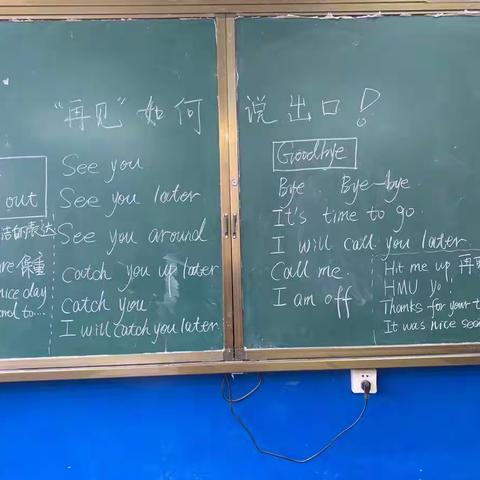 "再见"如何说出口!
out
洁的表达
保重
nice day
to...
See you
See you later
See you around
Catch you up later
Catch you
I will catch you later
Goodbye
Bye Bye-bye
It's time to go.
I will call you later
Call me.
I am off
Hit me up 再
HMU yo!
Thanks for your
It was nice